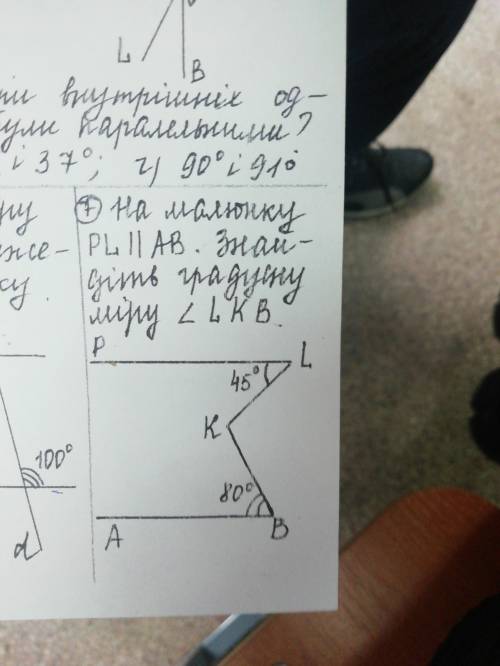 L
B
внутрішніх од-
паралельними?
і 37°; г) 90° і 91°
7 На малюнку
PL || AB. Знай-
діть градусну
міру ∠ LKB.
P
L
45°
K
100°
80°
α
A
B